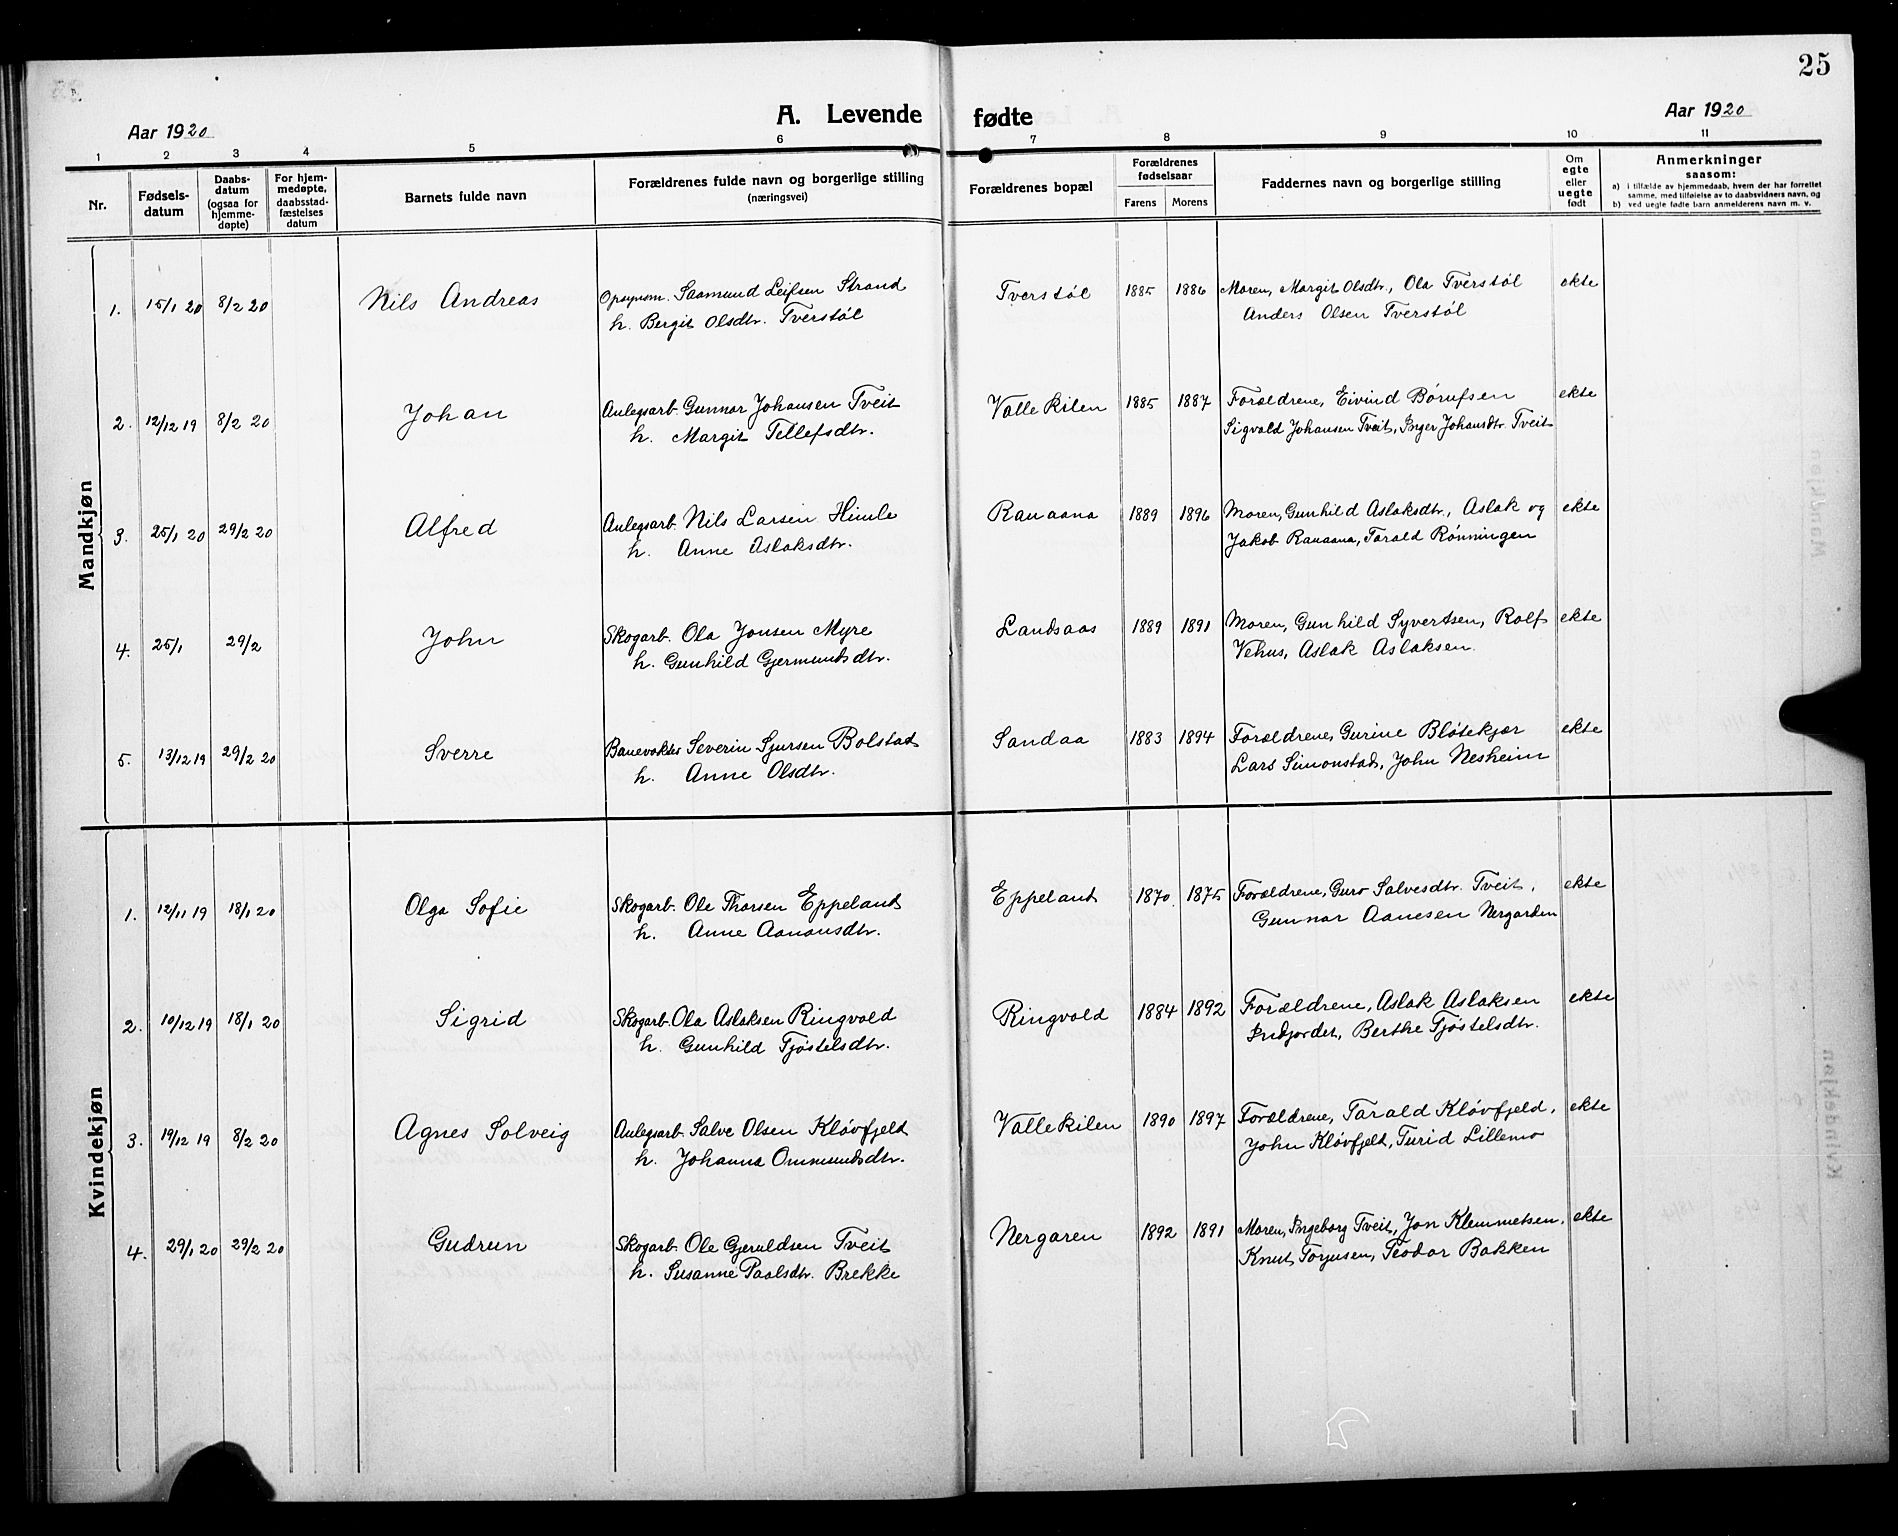 25
A. Levende fødte
Aar 1920
Aar 1920
1 2 3 4 5 6 7 8 9 10 11
Nr.
Fødsels-
datum
Daabs-
datum
(ogsaa for
hjemme-
døpte)
For hjem-
medøpte,
daabsstad-
fæstelses
datum
Barnets fulde navn
Forældrenes fulde navn og borgerlige stilling
(næringsvei)
Forældrenes bopæl
Forældrenes
fødselsaar
Farens Morens
Faddernes navn og borgerlige stilling
Om
egte
eller
uegte
født
Anmerkninger
saasom:
a) i tilfælde av hjemmedaab, hvem der har forrettet
samme, med tilføielse av to daabsvidners navn, og
b) ved uegte fødte barn anmelderens navn m. v.
Mandkjøn
1. 15/1 20 8/2 20 Nils Andreas Opsynsm. Saamund Leifsen Strand Tverstøl 1885 1886 Moren, Margit Olsdtr., Ola Tverstøl ekte
h. Bergit Olsdtr. Tverstøl Anders Olsen Tverstøl
2. 12/12 19 8/2 20 Johan Anlegsarb. Gunnar Johansen Tveit Valle kilen 1885 1887 Forældrene, Eivind Børufsen ekte
h. Margit Tellefsdtr. Sigvald Johansen Tveit, Inger Johansdtr. Tveit
3. 25/1 20 29/2 20 Alfred Anlegsarb. Nils Larsen Himle Ranaana 1889 1896 Moren, Gunhild Aslaksdtr., Aslak og ekte
h. Anne Aslaksdtr. Jakob Ranaana, Tarald Rønningen
4. 25/1 29/2 John Skogarb. Ola Jonsen Myre Landsaas 1889 1891 Moren, Gunhild Syvertsen, Rolf ekte
h. Gunhild Gjermundsdtr. Vehus, Aslak Aslaksen.
5. 13/12 19 29/2 20 Sverre Banevokter Severin Sjursen Bolstad Sandaa 1883 1894 Forældrene, Gurine Bløtekjær ekte
h. Anne Olsdtr. Lars Simonstad, John Nesheim
Kvindekjøn
1. 12/11 19 18/1 20 Olga Sofie Skogarb. Ole Thorsen Eppeland Eppeland 1870 1875 Forældrene, Guro Salvesdtr. Tveit, ekte
h. Anne Aanonsdtr. Gunnar Aanesen Nergarden
2. 10/12 19 18/1 20 Sigrid Skogarb. Ola Aslaksen Ringvold Ringvold 1884 1892 Forældrene, Aslak Aslaksen ekte
h. Gunhild Tjøstelsdtr. Indjordet, Berthe Tjøstelsdtr.
3. 19/12 19 8/2 20 Agnes Solveig Anlegsarb. Salve Olsen Kløvfjeld Valle kilen 1890 1897 Forældrene, Tarald Kløvfjeld, ekte
h. Johanna Ommundsdtr. John Kløvfjeld, Turid Lillemo
4. 29/1 20 29/2 20 Gudrun Skogarb. Ole Gjeruldsen Tveit Nergaren 1892 1891 Moren, Ingeborg Tveit, Jon Klemmetsen, ekte
h. Susanne Paalsdtr. Brekke Knut Torjusen, Teodor Bakken